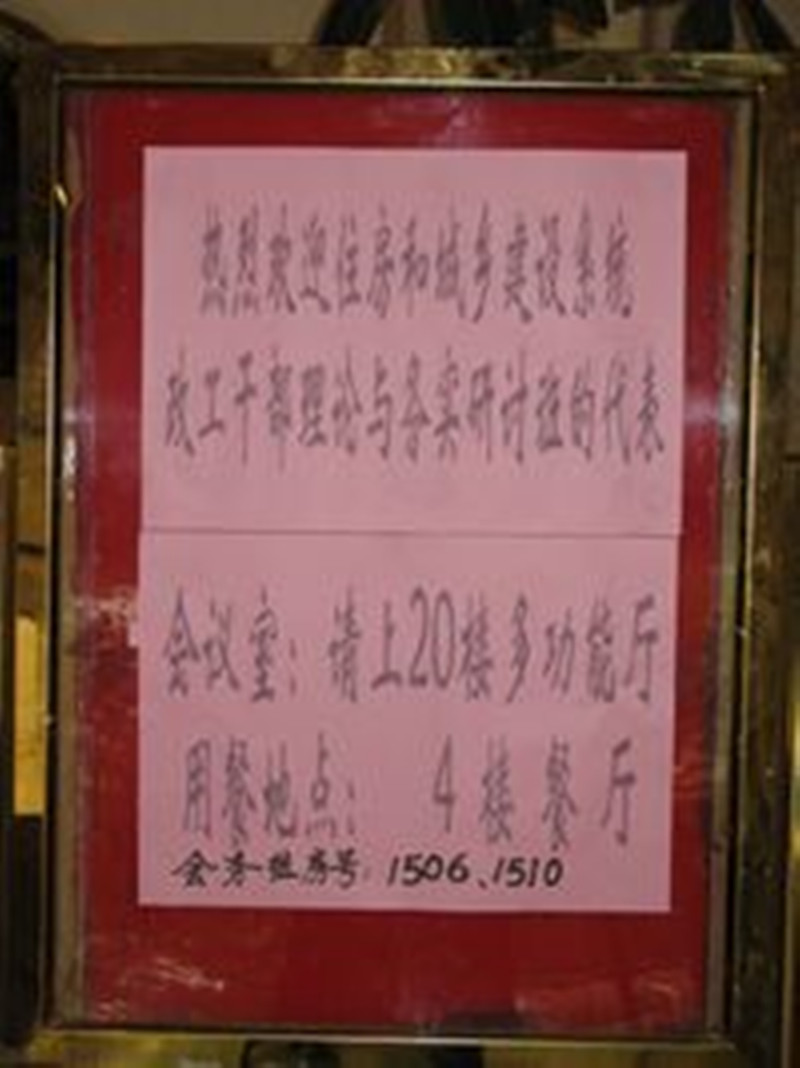 热烈欢迎住房和城乡建设系统
政工干部理论与务实研讨班的代表
会议室：请上20楼多功能厅
用餐地点：4楼餐厅
会务组房号：1506、1510